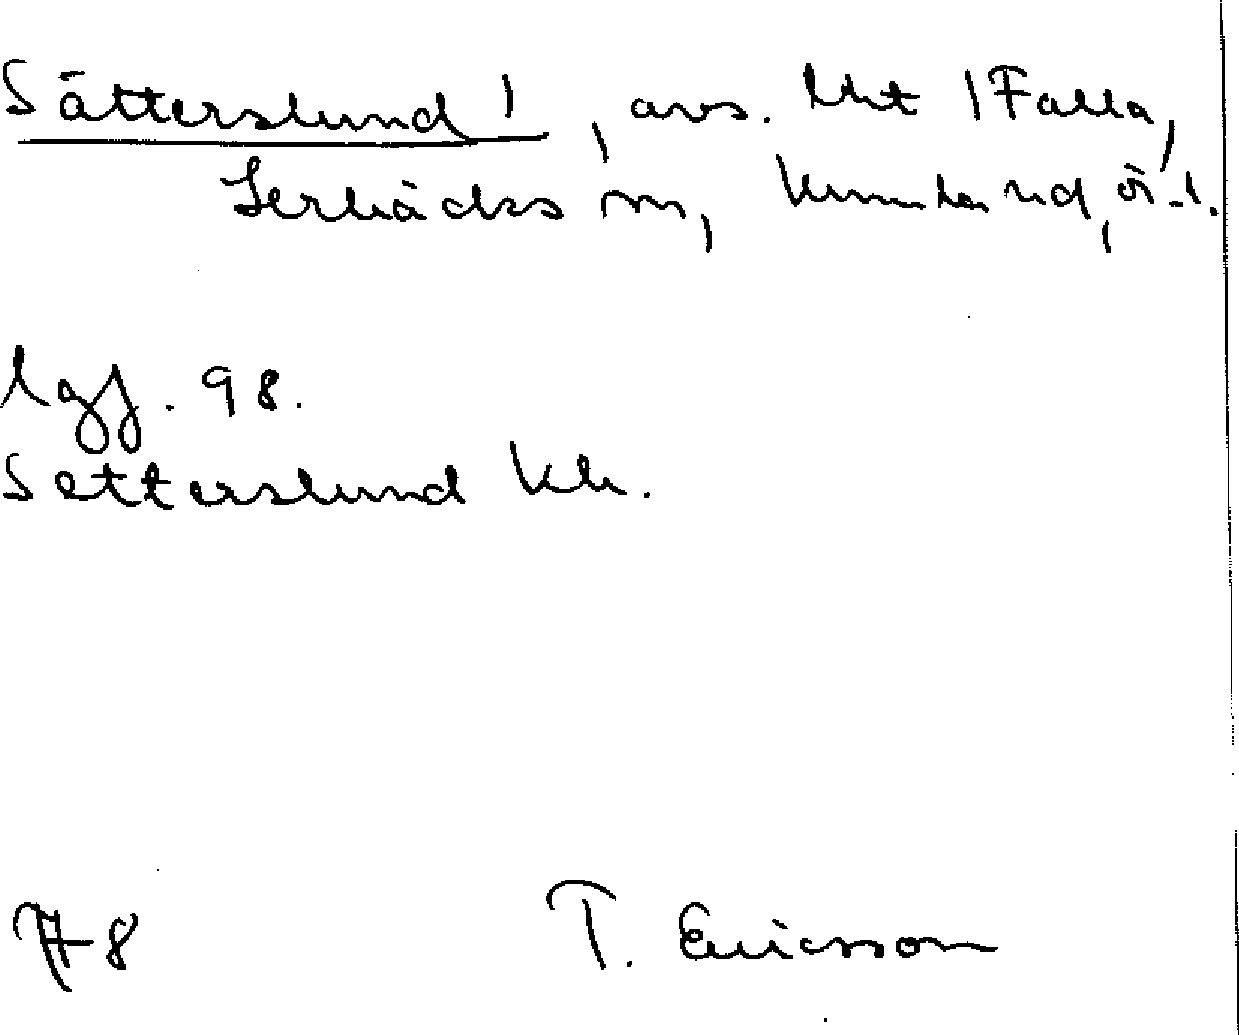 Sätterslund 1, avs. lht 1 Falla,
Lerbäcks sn, Kumla hd, ör.l.
98.
Setterslund
78 T. Ericsson